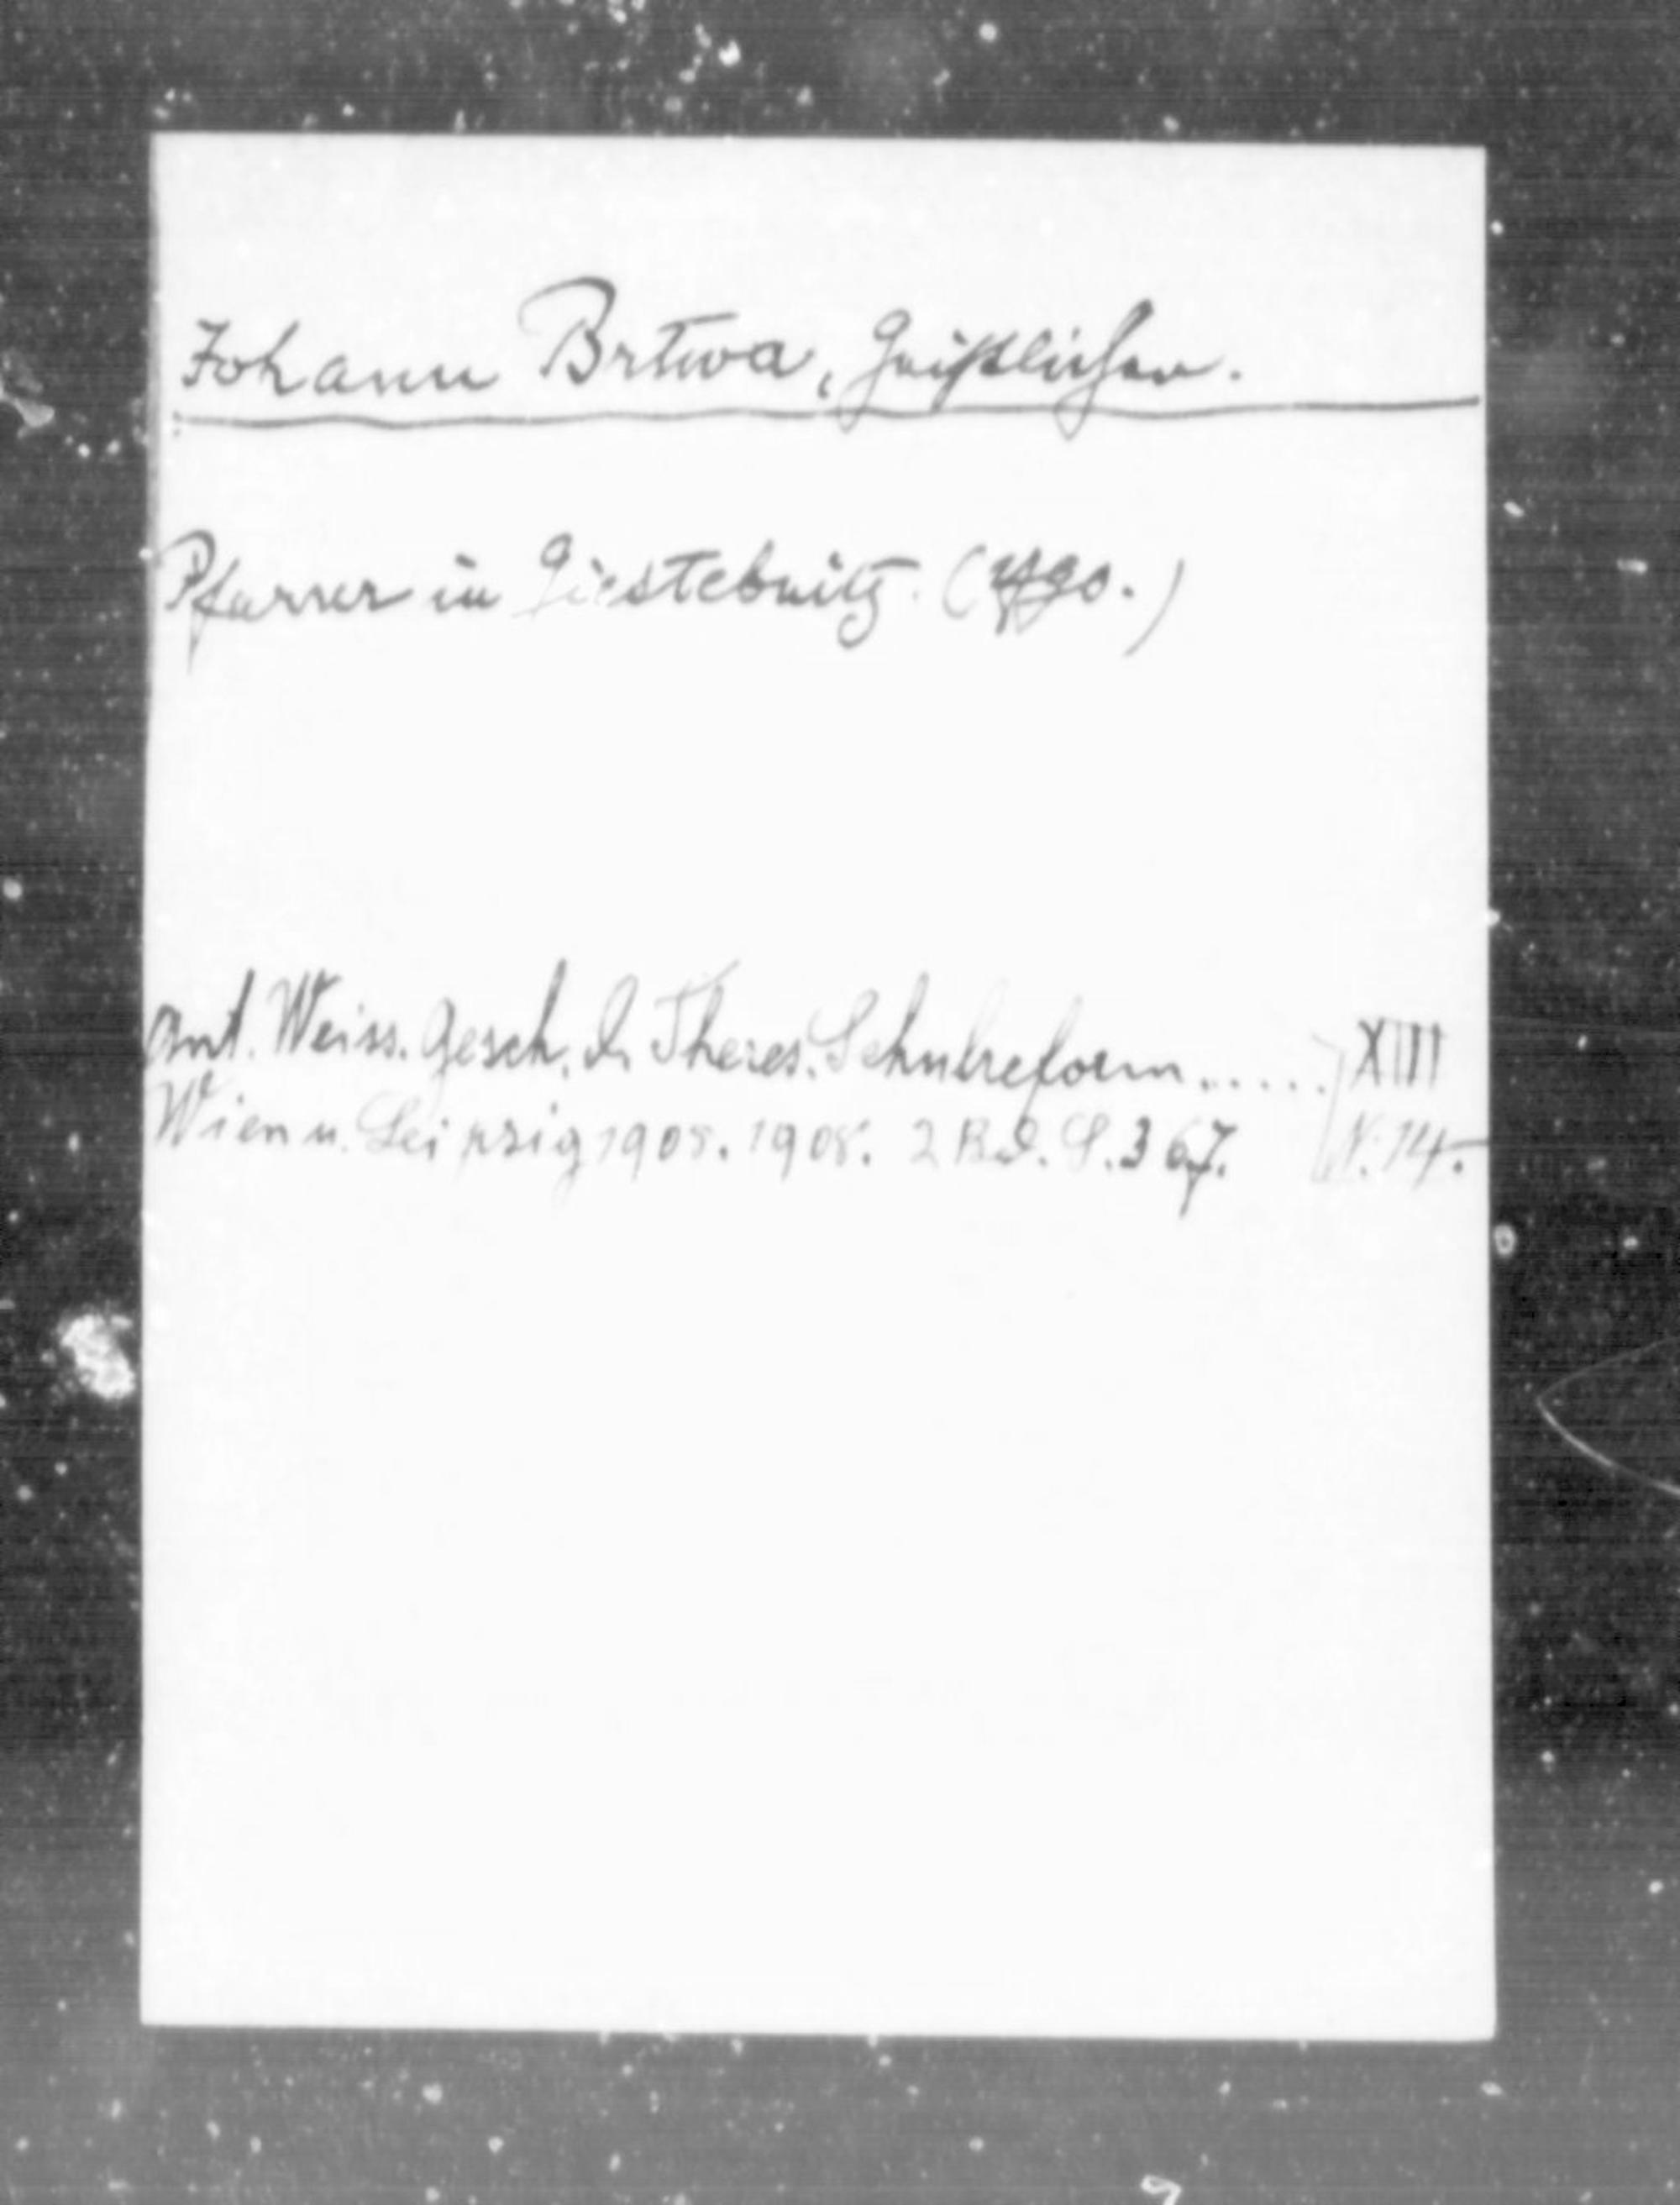 Johann Brtwa, Geistlicher.
Pfarrer in Giestebnitz. (1790.)
Ant. Weiss. Gesch. d. Theres. Schulreform..... XIII
Wien u. Leipzig 1905. 1908. 2 Bd. S. 367. N. 14.